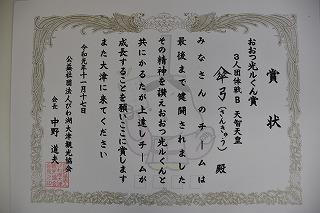 賞状
おおつ光ルくん賞
3人団体戦 B 天智天皇
傘弓(さんきゅう) 殿
みなさんのチームは
最後まで健闘されました
その精神を讃えおおつ光ルくんと
共にかるたが上達しチームが
成長することを願いここに賞します
また大津に来てください
令和元年十一月十七日
公益社団法人びわ湖大津観光協会
会長 中野 道夫